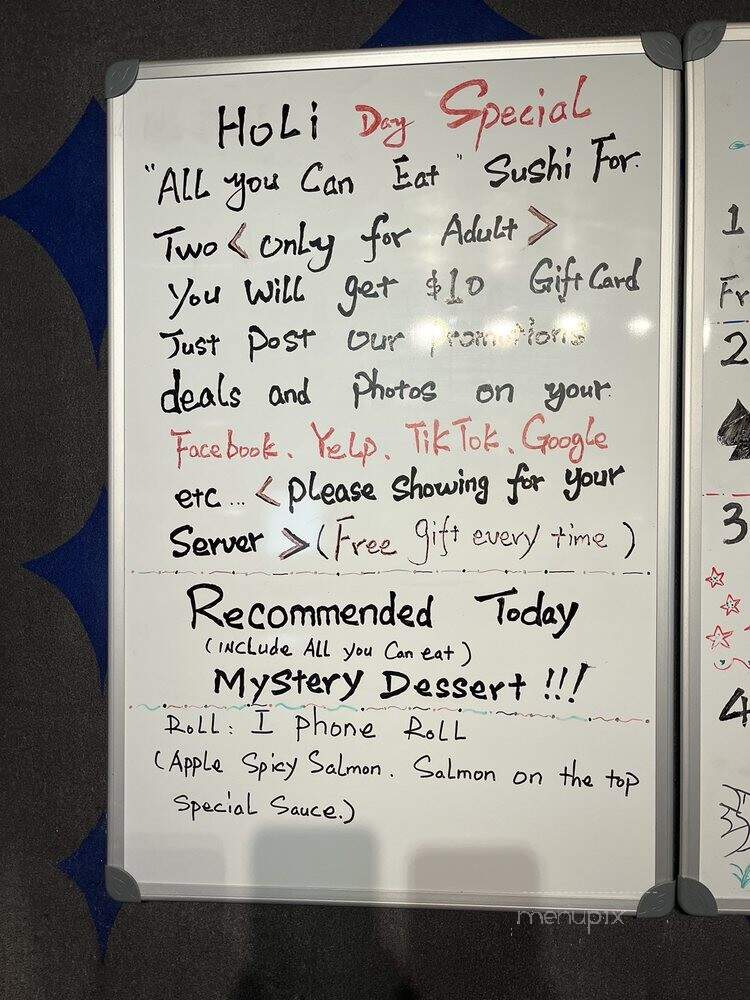 HoLi Day Special
"ALL you Can Eat" Sushi For
Two < only for Adult >
You Will get $10 Gift Card
Just Post our Promotions
deals and Photos on your
Facebook, Yelp, TikTok, Google
etc... < please showing for your
Server > (Free gift every time)
Recommended Today
(include All you Can eat)
Mystery Dessert !!!
RoLL: I phone RoLL
(Apple Spicy Salmon. Salmon on the top
special Sauce.)
1
Fr
2
3
4
menupix